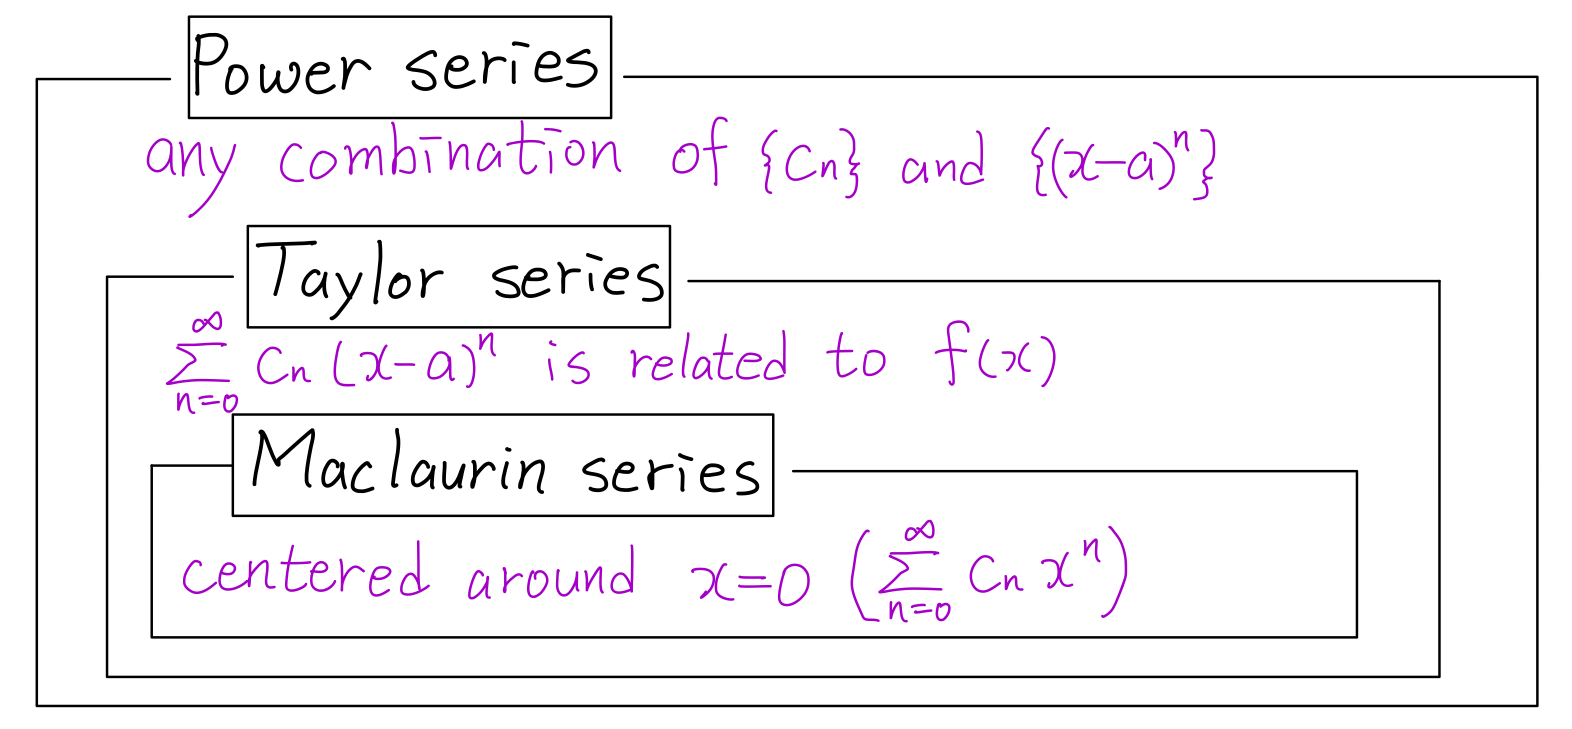 Power series
any combination of {Cn} and {(x-a)ⁿ}
Taylor series
∞
∑ Cn (x-a)ⁿ is related to f(x)
n=0
Maclaurin series
∞
centered around x=0 (∑ Cn xⁿ)
n=0